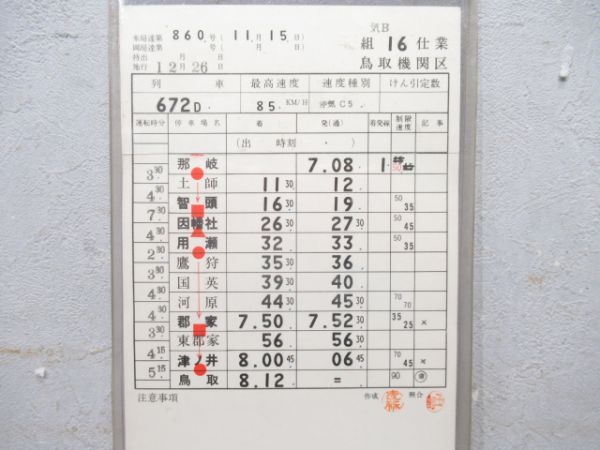 気B
米局達第 860 号 ( 11 月 15 日 )
岡局達第 号 ( 月 日 )
組 16 仕業
持出 月 日
施行 12 月 26 日
鳥取機関区
列車 最高速度 速度種別 けん引定数
672D 85 KM/H 停気 C5
運転時分 停車場名 着 発(通) 着発線 制限速度 記事
(出 時刻 ・ )
那岐 7.08 1
3 30 土師 11 30 12
4 30 智頭 16 30 19 50 35
7 30 因幡社 26 30 27 30 50 45
4 30 用瀬 32 33 50 35
2 30 鷹狩 35 30 36
3 30 国英 39 30 40
4 30 河原 44 30 45 30 70 70
4 30 郡家 7.50 7.52 30 35 25 ×
3 30 東郡家 56 30 56 30
4 15 津ノ井 8.00 45 06 45 70 45 ×
5 15 鳥取 8.12 = 90
注意事項 作成 照合